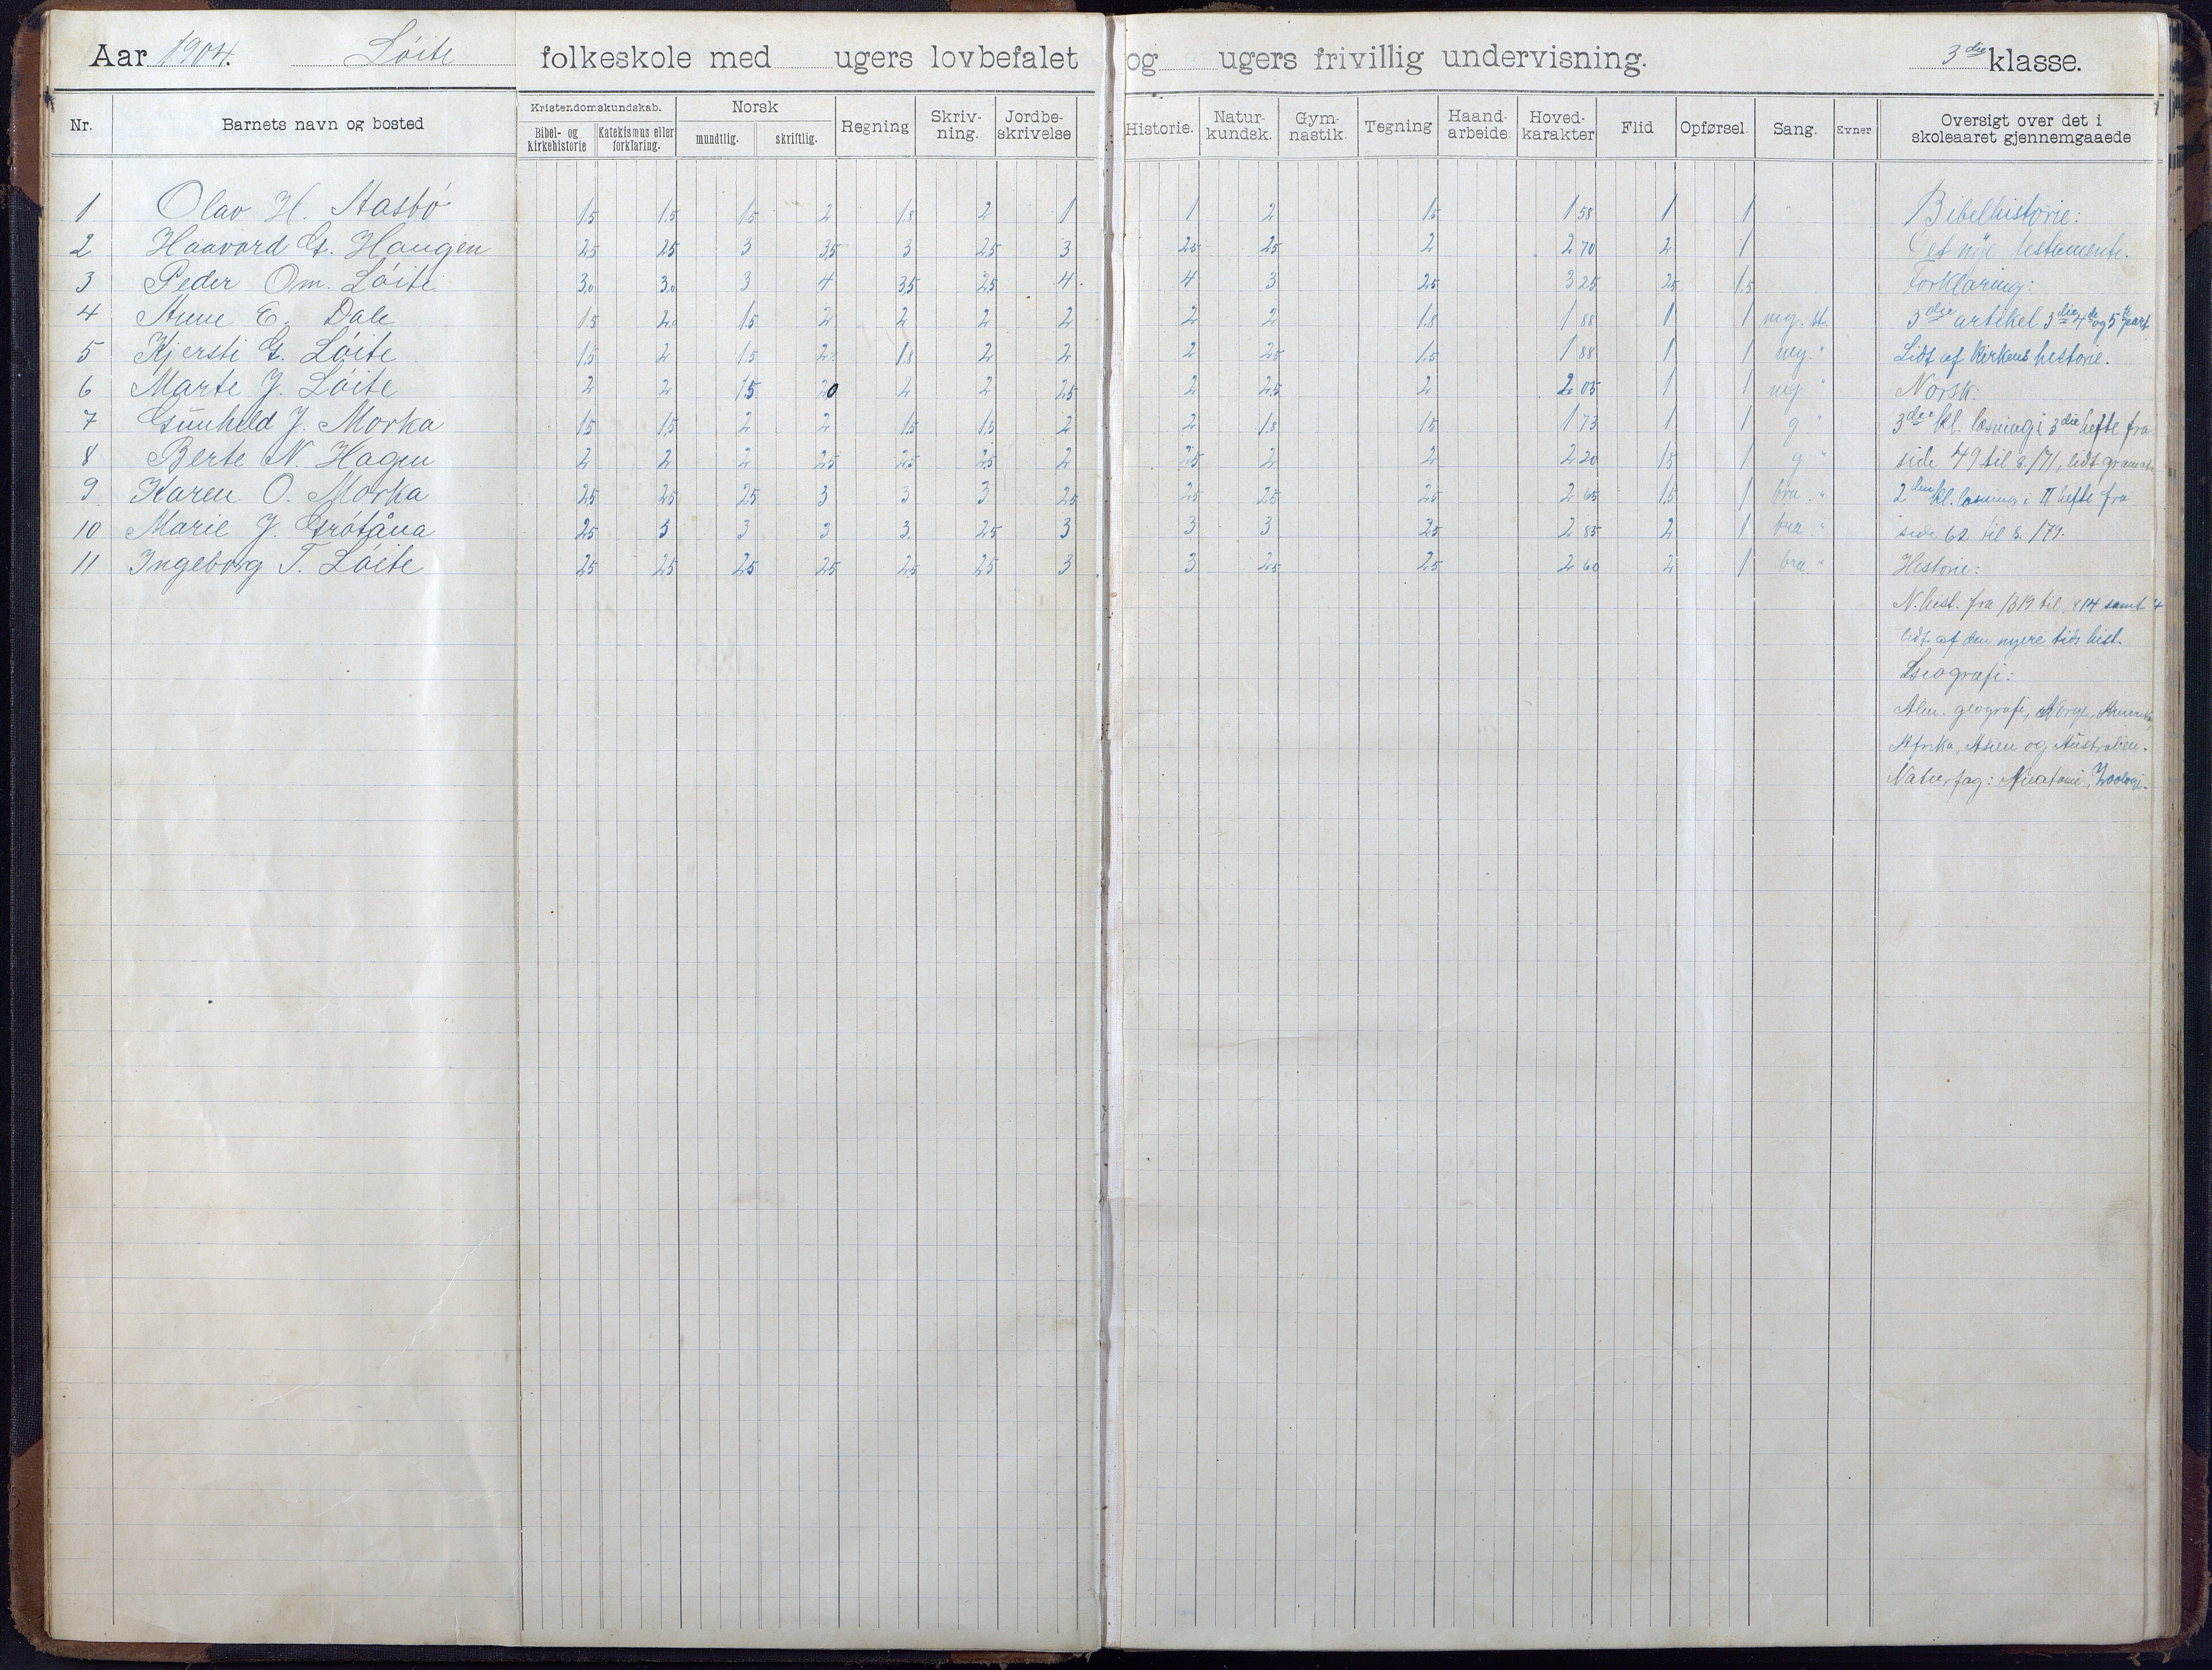 Aar 1904. Löite folkeskole med ugers lovbefalet og ugers frivillig undervisning. 3die klasse.
Nr. Barnets navn og bosted Kristendomskundskab. Bibel- og kirkehistorie Katekismus eller forklaring. Norsk mundtlig. skriftlig. Regning Skriv-ning. Jordbe-skrivelse Historie. Natur-kundsk. Gym-nastik. Tegning Haand-arbeide. Hoved-karakter Flid Opførsel. Sang. Evner Oversigt over det i skoleaaret gjennemgaaede
1 Olav H. Aasbö 1,5 1,5 1,5 2 1,8 2 1 1 2 1,5 1 58 1 1 Bibelhistorie:
2 Haavord G. Haugen 2,5 2,5 3 3,5 3 2,5 3 2,5 2,5 2 2 70 2 1 Det nye testamente.
3 Peder Om. Löite 3,0 3,0 3 4 3,5 2,5 4 4 3 2,5 3 25 2,5 1,5 Forklaring:
4 Anne E. Dale 1,5 2,0 1,5 2 2 2 2 2 2 1,8 1 88 1 1 mg. st. 3die artikel 3die 4de og 5te part
5 Kjersti G. Löite 1,5 2 1,5 2 1,8 2 2 2 2,5 1,5 1 88 1 1 mg. " Lidt af kirkens historie.
6 Marte J. Löite 2 2 1,5 2,0 2 2 2,5 2 2,5 2 2 05 1 1 mg " Norsk:
7 Gunhild J. Morka 1,5 1,5 2 2 1,5 1,5 2 2 1,8 1,5 1 73 1 1 g " 3die kl. læsning i 3die hefte fra
8 Berte N. Hagen 2 2 2 2,5 2,5 2,5 2 2,5 2 2 2 20 1,5 1 g " side 49 til s. 171, lidt gramat.
9 Karen O. Morka 2,5 2,5 2,5 3 3 3 2,5 2,5 2,5 2,5 2 65 1,5 1 bra. " 2den kl. læsning i II hefte fra
10 Marie J. Grötåna 2,5 3 3 3 3 2,5 3 3 3 2,5 2 85 2 1 bra. " side 62 til s. 179.
11 Ingeborg T. Löite 2,5 2,5 2,5 2,5 2,5 2,5 3 3 2,5 2,5 2 60 2 1 bra. " Historie:
N. hist. fra 1319 til 1814 samt
lidt af den nyere tids hist.
Geografi:
Alm. geografi, Norge, Amerika,
Afrika, Asien og Australien.
Naturfag: Anatomi, Zoologi.